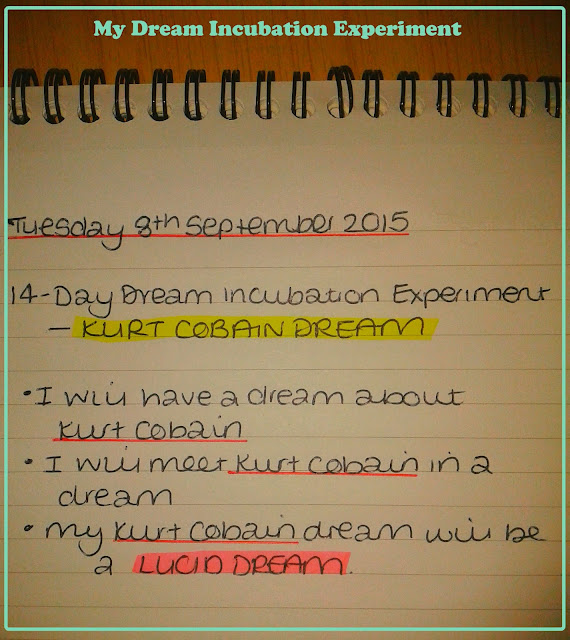 My Dream Incubation Experiment
Tuesday 8th September 2015
14-Day Dream Incubation Experiment
– KURT COBAIN DREAM
• I will have a dream about
Kurt Cobain
• I will meet Kurt Cobain in a
dream
• My Kurt Cobain dream will be
a LUCID DREAM.